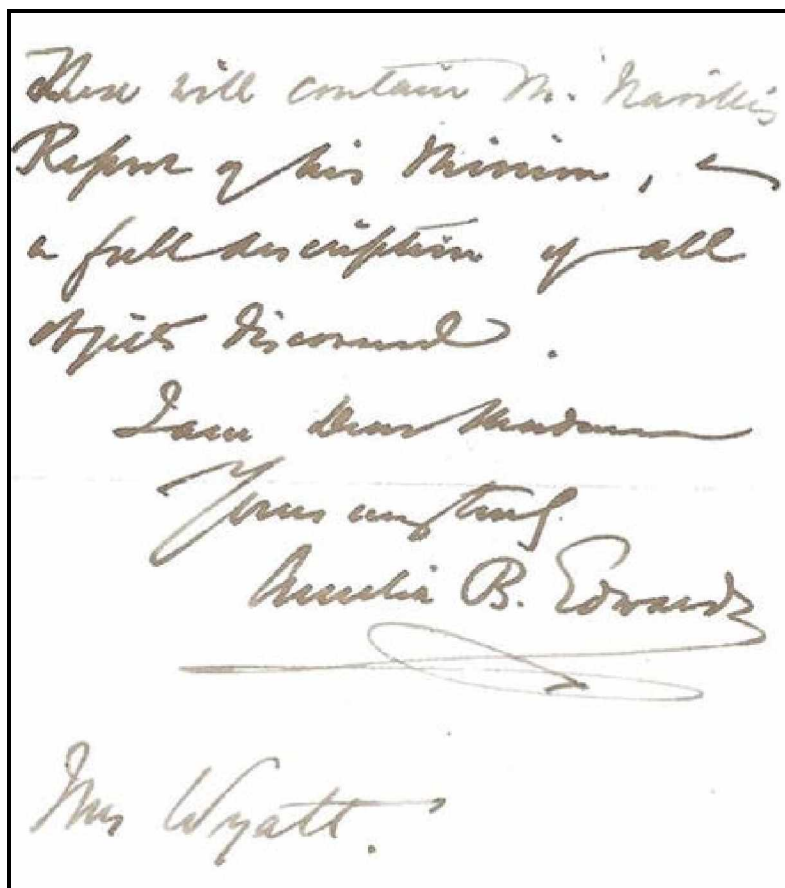 These will contain M. Naville's
Report of his Mission, &
a full description of all
objects discovered.
I am Dear Madam
Yours very truly
Amelia B. Edwards
Mrs Wyatt.